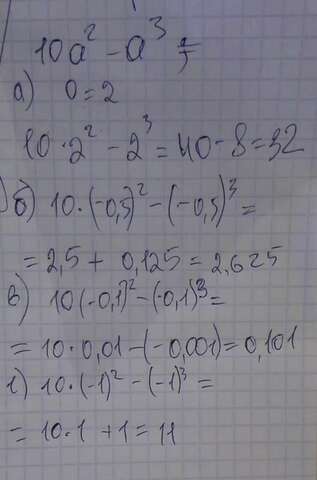 10a² - a³ =
a) a = 2
10·2² - 2³ = 40 - 8 = 32
б) 10·(-0,5)² - (-0,5)³ =
= 2,5 + 0,125 = 2,625
в) 10(-0,1)² - (-0,1)³ =
= 10·0,01 - (-0,001) = 0,101
г) 10·(-1)² - (-1)³ =
= 10·1 + 1 = 11